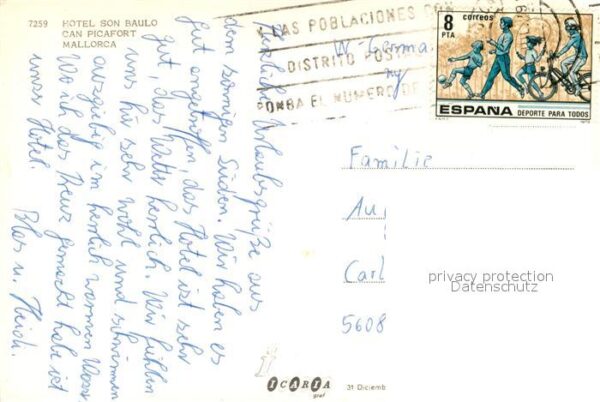 7259 HOTEL SON BAULO
CAN PICAFORT
MALLORCA
Herzliche Urlaubsgrüße aus
dem sonnigen Süden. Wir haben es
gut angetroffen, das Hotel ist sehr
gut, das Wetter herrlich. Wir fühlen
uns hier sehr wohl und schwimmen
ausgiebig im herrlich warmen Wasser
Wo ich das Kreuz gemacht habe ist
unser Hotel.
u. Heidi.
LAS POBLACIONES CON
DISTRITO POSTAL
PONGA EL NUMERO DE
8
PTA
correos
ESPAÑA DEPORTE PARA TODOS
W-Germany
Familie
Au
Carl
5608
privacy protection
Datenschutz
ICARIA
graf
31 Diciemb